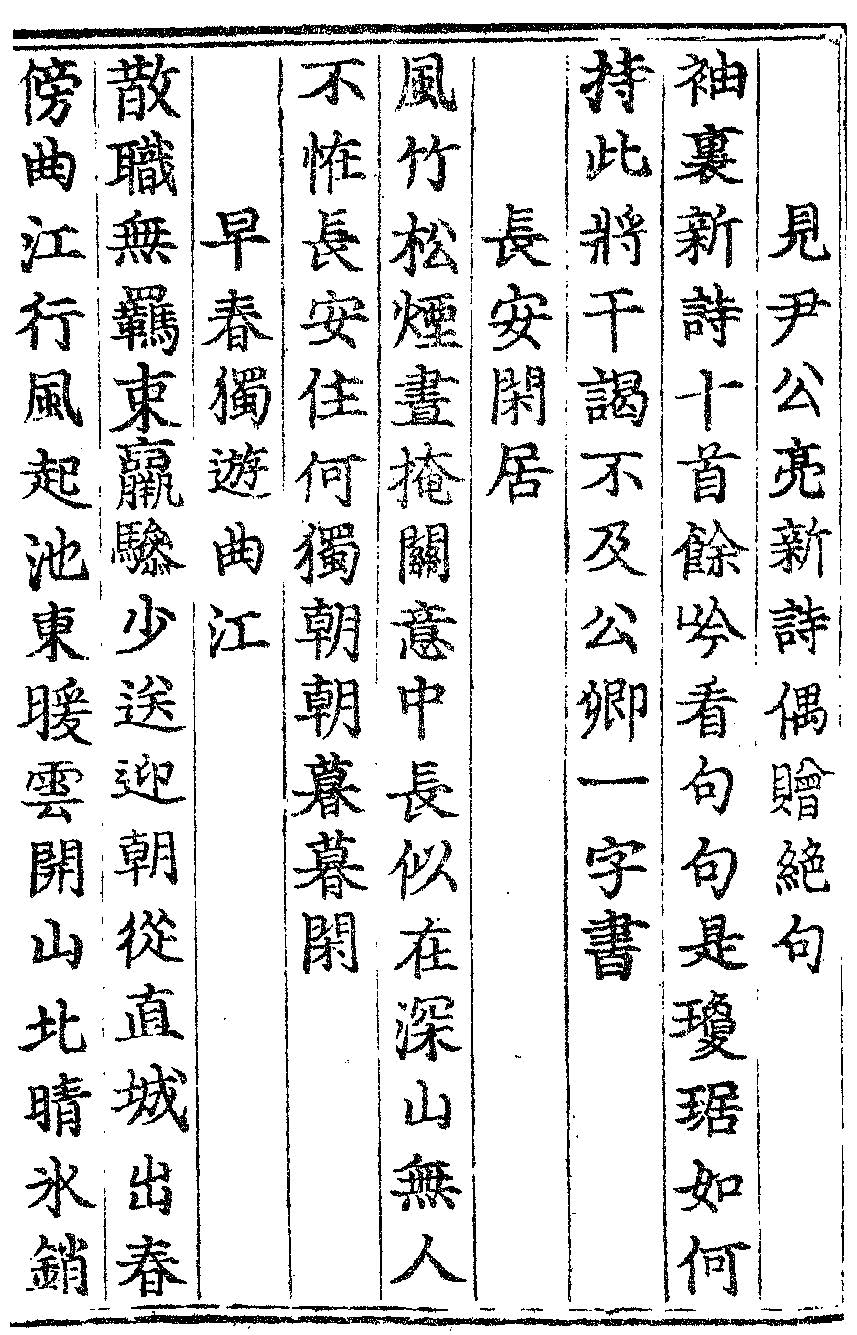 見尹公亮新詩偶贈絶句
袖裏新詩十首餘吟看句句是瓊琚如何
持此將干謁不及公卿一字書
長安閑居
風竹松煙晝掩關意中長似在深山無人
不恠長安住何獨朝朝暮暮閑
早春獨遊曲江
散職無羈束羸驂少送迎朝從直城出春
傍曲江行風起池東暖雲開山北晴氷銷